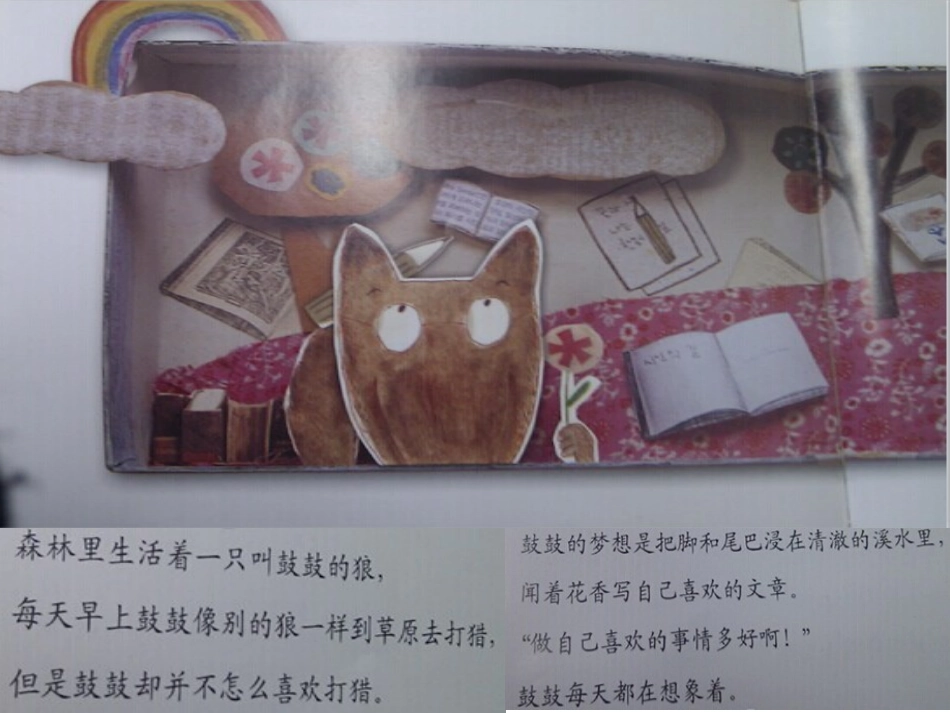 森林里生活着一只叫鼓鼓的狼，
每天早上鼓鼓像别的狼一样到草原去打猎，
但是鼓鼓却并不怎么喜欢打猎。
鼓鼓的梦想是把脚和尾巴浸在清澈的溪水里，
闻着花香写自己喜欢的文章。
“做自己喜欢的事情多好啊！”
鼓鼓每天都在想象着。